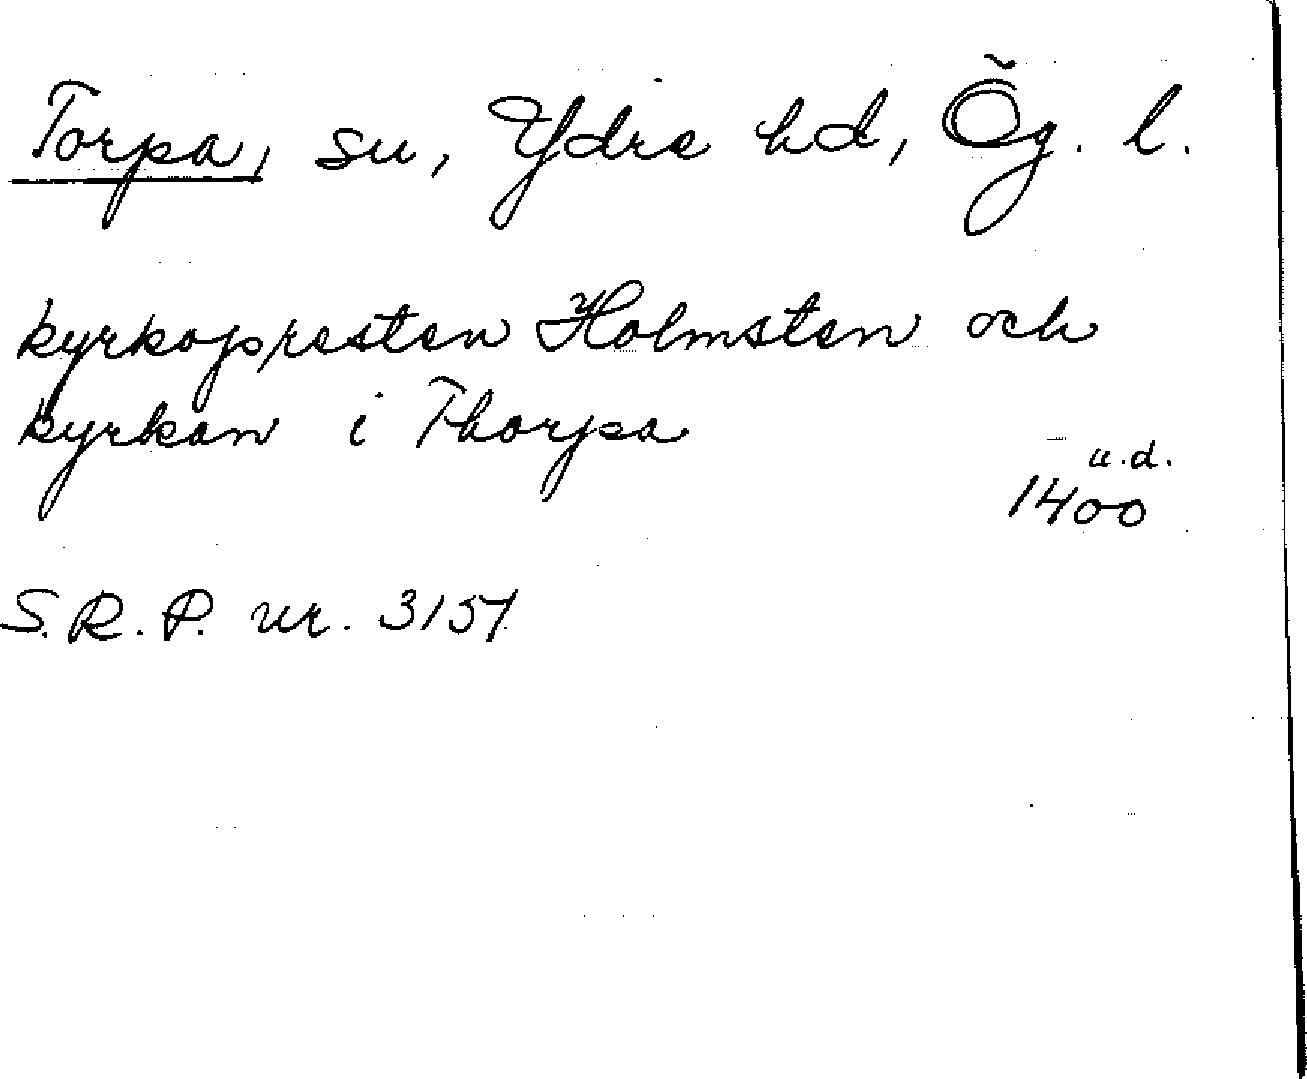 Torpa, sn, Ydre hd, Ög. l.
kyrkopresten Holmsten och
kyrkan i Thorpa
u.d.
1400
S.R.P. nr. 3157